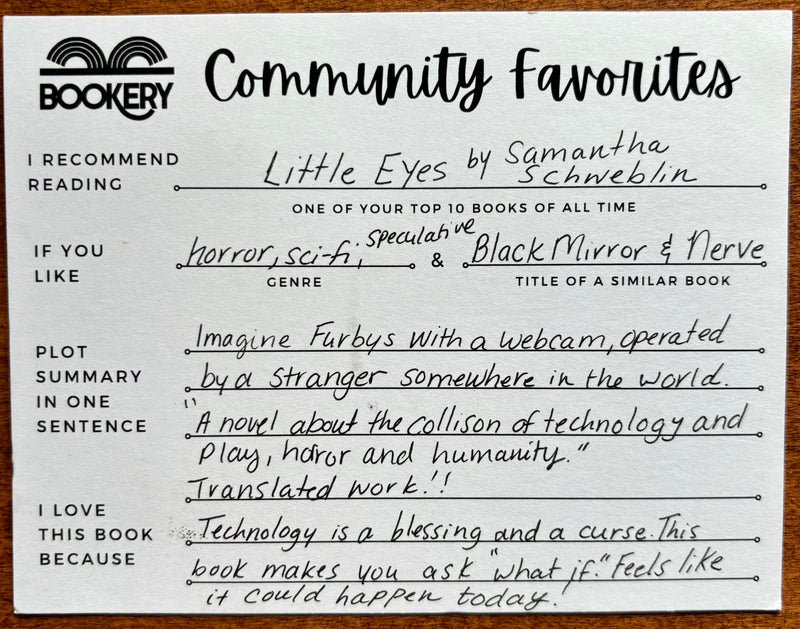 BOOKERY
Community Favorites
I RECOMMEND
READING
Little Eyes by Samantha
Schweblin
ONE OF YOUR TOP 10 BOOKS OF ALL TIME
IF YOU
LIKE
horror, sci-fi, speculative
&
Black Mirror & Nerve
GENRE
TITLE OF A SIMILAR BOOK
PLOT
SUMMARY
IN ONE
SENTENCE
Imagine Furbys with a webcam, operated
by a stranger somewhere in the world.
"A novel about the collison of technology and
Play, horor and humanity."
I LOVE
THIS BOOK
BECAUSE
Translated work!!
Technology is a blessing and a curse. This
book makes you ask "what if." Feels like
it could happen today.